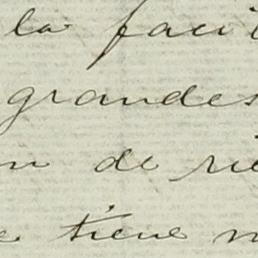 la facil
grandes
n de rie
e tiene n